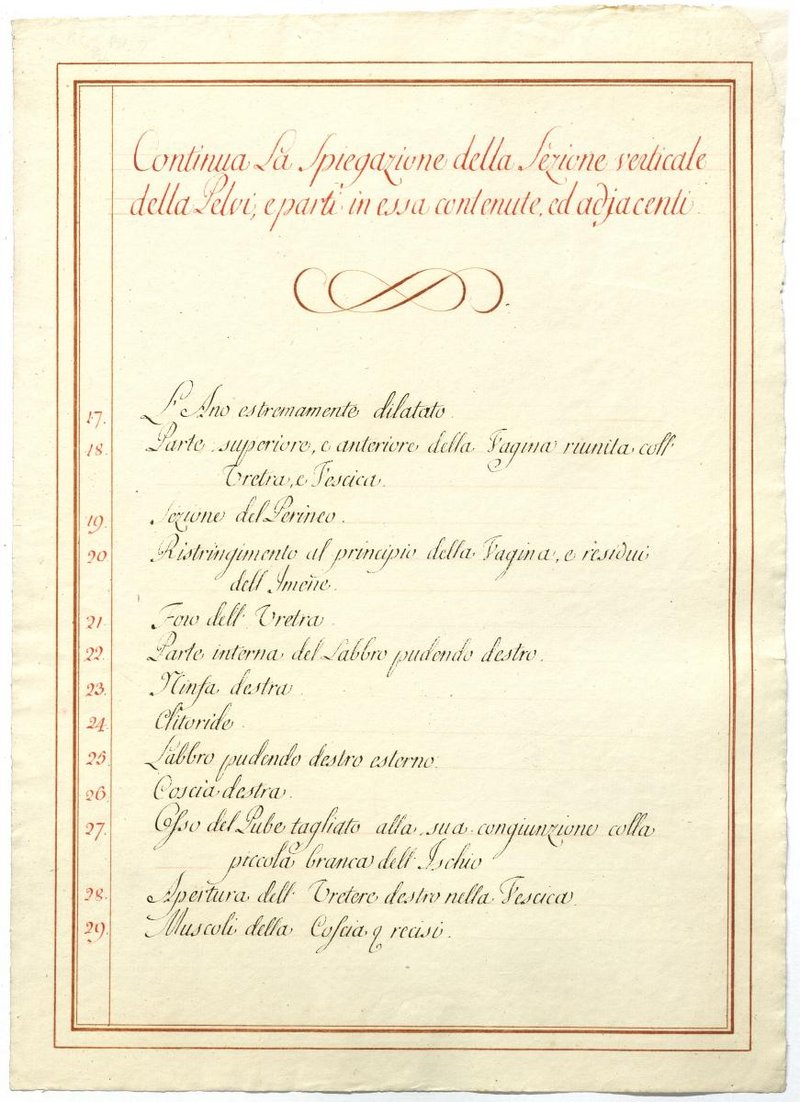 Continua La Spiegazione della Sezione verticale
della Pelvi, e parti in essa contenute, ed adjacenti.
17. L'Ano estremamente dilatato.
18. Parte superiore, e anteriore della Vagina riunita coll'
Uretra, e Vescica.
19. Sezione del Perineo.
20 Ristringimento al principio della Vagina, e residui
dell'Imene.
21. Foro dell'Uretra.
22. Parte interna del Labbro pudendo destro.
23. Ninfa destra.
24. Clitoride.
25. Labbro pudendo destro esterno.
26. Coscia destra.
27. Osso del Pube tagliato alla sua congiunzione colla
piccola branca dell'Ischio
28. Apertura dell'Uretere destro nella Vescica.
29. Muscoli della Coscia recisi.